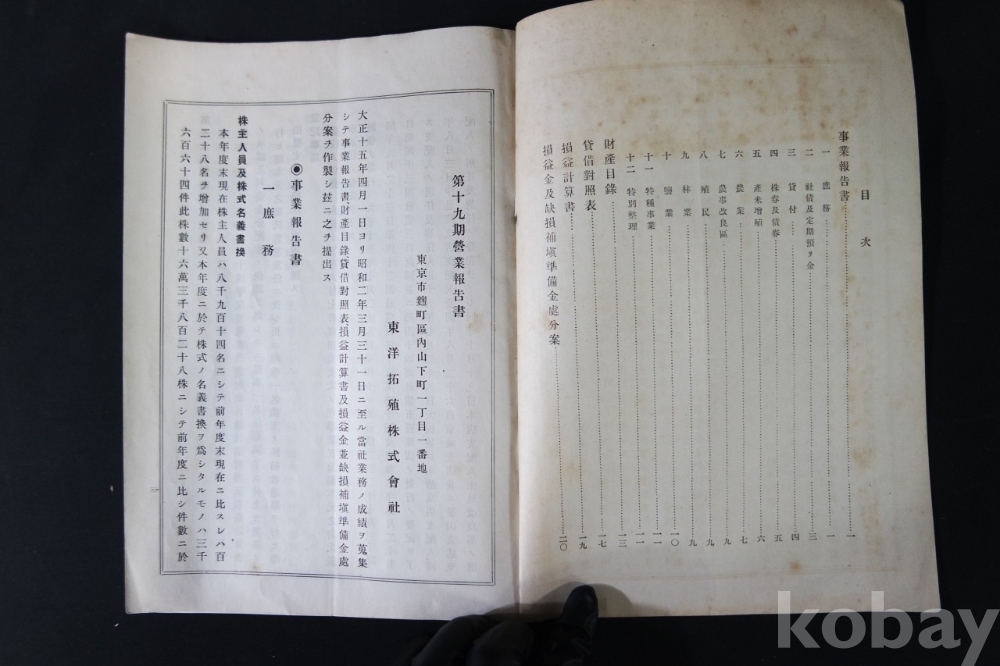 目次
事業報告書……一
一 庶務……一
二 社債及定期預リ金……三
三 貸付……四
四 株券及債券……五
五 產米增殖……六
六 農業……七
七 農事改良區……九
八 殖民……九
九 林業……九
十 鹽業……一〇
十一 特種事業……一一
十二 特別整理……一一
財產目錄……一三
貸借對照表……一七
損益計算書……一九
損益金及缺損補塡準備金處分案……二〇
第十九期營業報告書
東京市麴町區內山下町一丁目一番地
東洋拓殖株式會社
大正十五年四月一日ヨリ昭和二年三月三十一日ニ至ル當社業務ノ成績ヲ蒐集
シテ事業報告書財產目錄貸借對照表損益計算書及損益金並缺損補塡準備金處
分案ヲ作製シ玆ニ之ヲ提出ス
◉事業報告書
一 庶務
株主人員及株式名義書換
本年度末現在株主人員ハ八千九百十四名ニシテ前年度末現在ニ比スレハ百
二十八名ヲ增加セリ又本年度ニ於テ株式ノ名義書換ヲ爲シタルモノハ三千
六百六十四件此株數十六萬三千八百二十八株ニシテ前年度ニ比シ件數ニ於
kobay